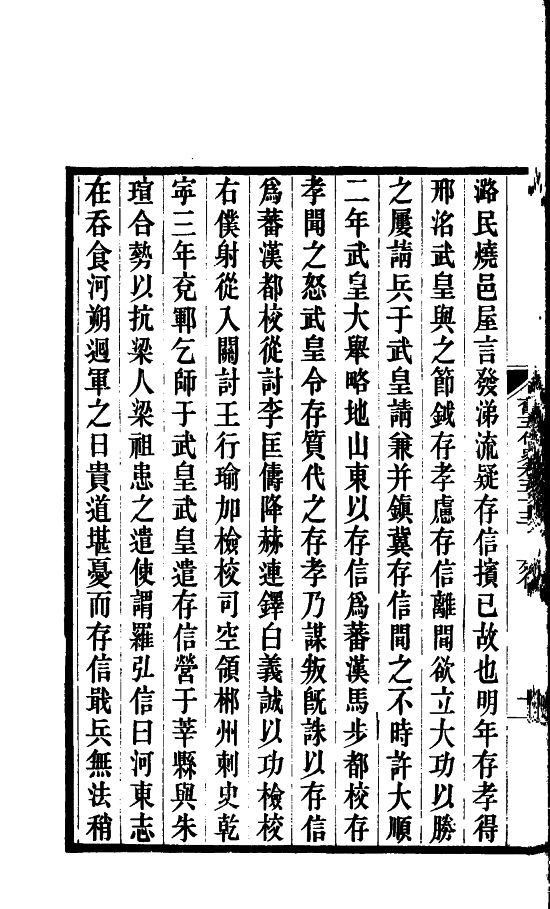 潞民燒邑屋言發涕流疑存信擯已故也明年存孝得
邢洺武皇與之節鉞存孝慮存信離間欲立大功以勝
之屢請兵于武皇請兼并鎮冀存信間之不時許大順
二年武皇大舉略地山東以存信爲蕃漢馬步都校存
孝聞之怒武皇令存質代之存孝乃謀叛旣誅以存信
爲蕃漢都校從討李匡儔降赫連鐸白義誠以功檢校
右僕射從入關討王行瑜加檢校司空領郴州刺史乾
寧三年兗鄆乞師于武皇武皇遣存信營于莘縣與朱
瑄合勢以抗梁人梁祖患之遣使謂羅弘信曰河東志
在吞食河朔迴軍之日貴道堪憂而存信戢兵無法稍